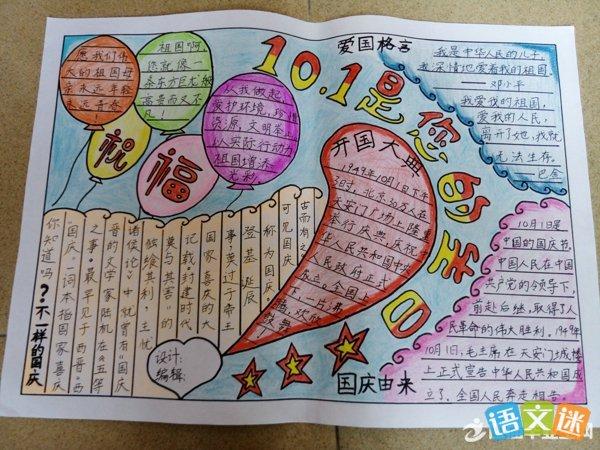 愿我们伟
大的祖国母
亲永远年轻
永远青春!
祖国啊
你就像一
条东方巨龙
高贵而又不
凡!
从我做起
爱护环境,珍惜
资源,文明举止
以实际行动为
祖国增添
光彩
祝
福
10.1是您的生日
爱国格言
我是中华人民的儿子,
我深情地爱着我的祖国
邓小平
我爱我的祖国,
爱我的人民,
离开了她,我就
无法生存。
巴金
开国大典
1949年10月1日下午
3时,北京30万人在
天安门广场上隆重
举行庆典,庆祝
华人民共和国中央
人民政府成
立。全国上
下,一片沸
腾,欢欣
鼓舞
10月1日是
中国的国庆节
中国人民在中国
共产党的领导下,
前赴后继,取得了人
民革命的伟大胜利。1949年
10月1日,毛主席在天安门城楼
上正式宣告中华人民共和国成
立了,全国人民奔走相告。
国庆由来
?不一样的国庆
你知道吗
“国庆”一词本指国家喜庆
之事,最早见于西晋。西
晋的文学家陆机在《五等
诸侯论》中就曾有“国庆
独飨其利,主忧
莫与其害”的
记载,封建时代
国家喜庆的大
事莫过于帝王
登基、诞辰
称为国庆。
可见国庆
古而有之
设计:
编辑:
语文迷